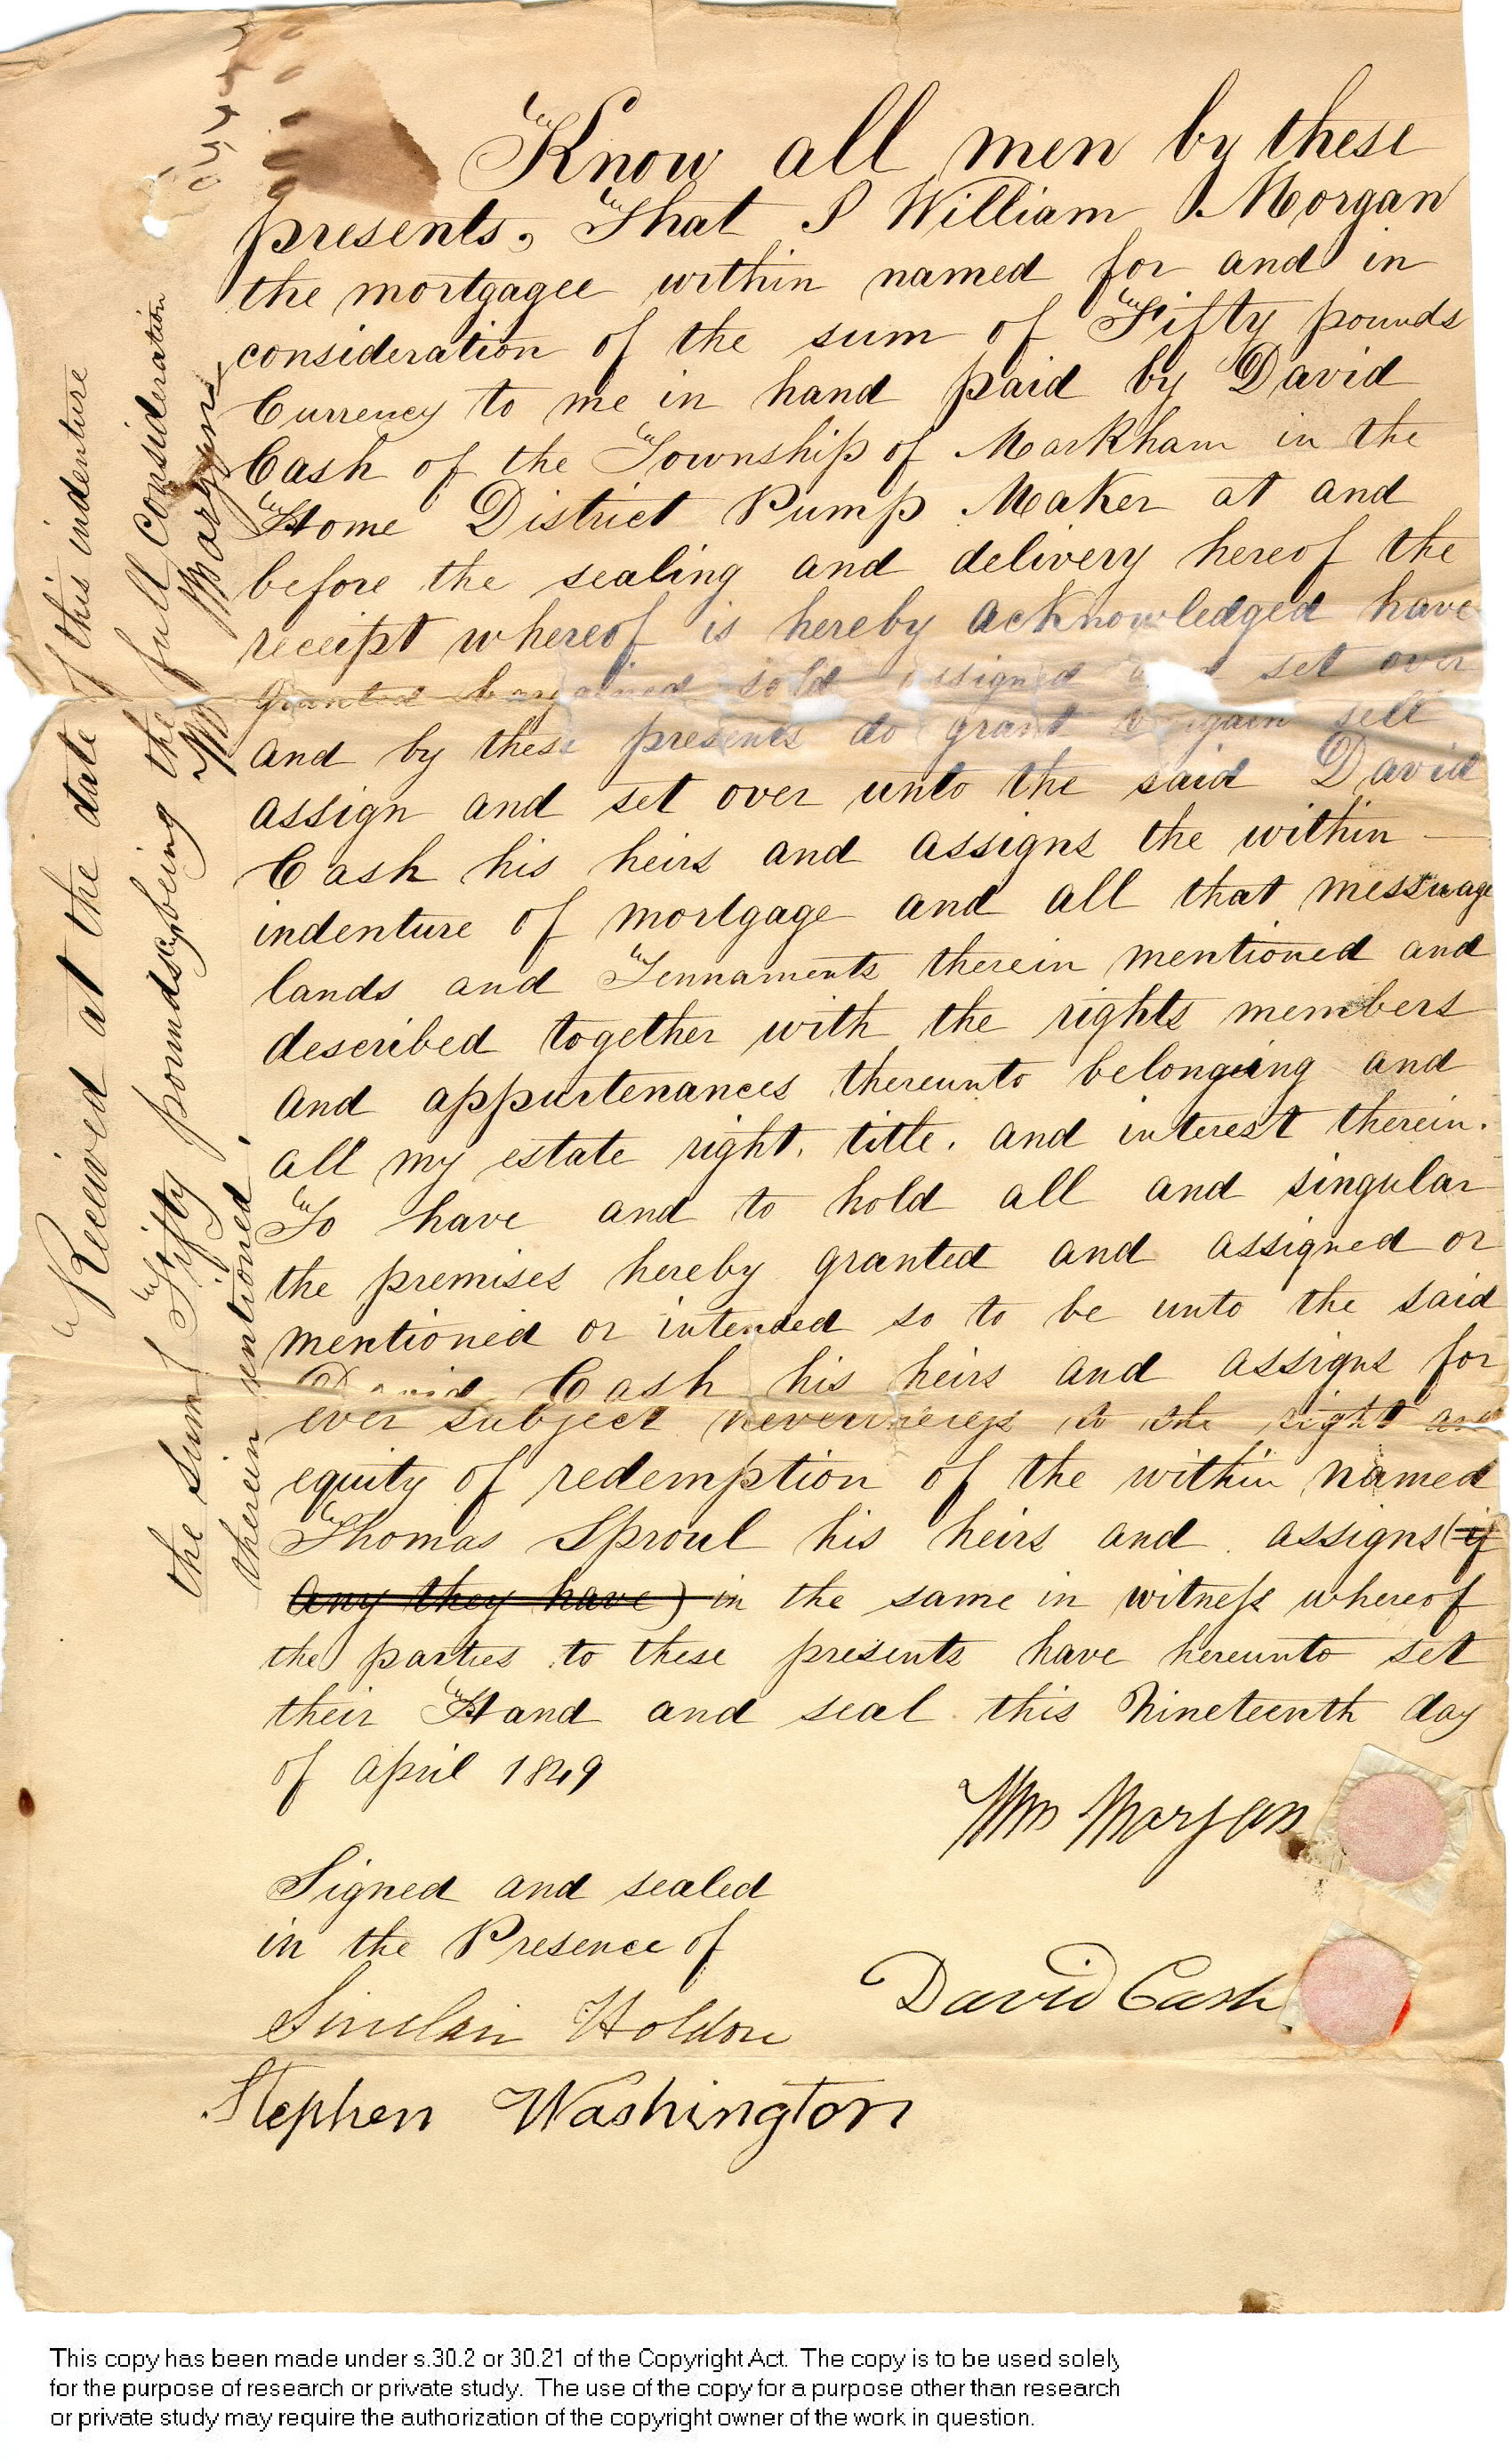 Know all men by these
presents, That I William Morgan
the mortgagee within named for and in
consideration of the sum of Fifty pounds
Currency to me in hand paid by David
Cash of the Township of Markham in the
Home District Pump Maker at and
before the sealing and delivery hereof the
receipt whereof is hereby acknowledged have
granted bargained sold assigned set over
and by these presents do grant sell
assign and set over unto the said David
Cash his heirs and assigns the within
indenture of mortgage and all that messuage
lands and Tennaments therein mentioned and
described together with the rights members
and appurtenances thereunto belonging and
all my estate right, title, and interest therein.
To have and to hold all and singular
the premises hereby granted and assigned or
mentioned or intended so to be unto the said
David Cash his heirs and assigns for
ever subject nevertheless to the right and
equity of redemption of the within named
Thomas Sproul his heirs and assigns (if
any they have) in the same in witness whereof
the parties to these presents have hereunto set
their Hand and seal this Nineteenth day
of april 1849
Wm Morgan
Signed and sealed
in the Presence of
David Cash
Sinclair Holden
Stephen Washington
Received at the date of this indenture
the sum of Fifty pounds cy being the full consideration
therein mentioned. Wm Morgan
This copy has been made under s.30.2 or 30.21 of the Copyright Act. The copy is to be used solely
for the purpose of research or private study. The use of the copy for a purpose other than research
or private study may require the authorization of the copyright owner of the work in question.